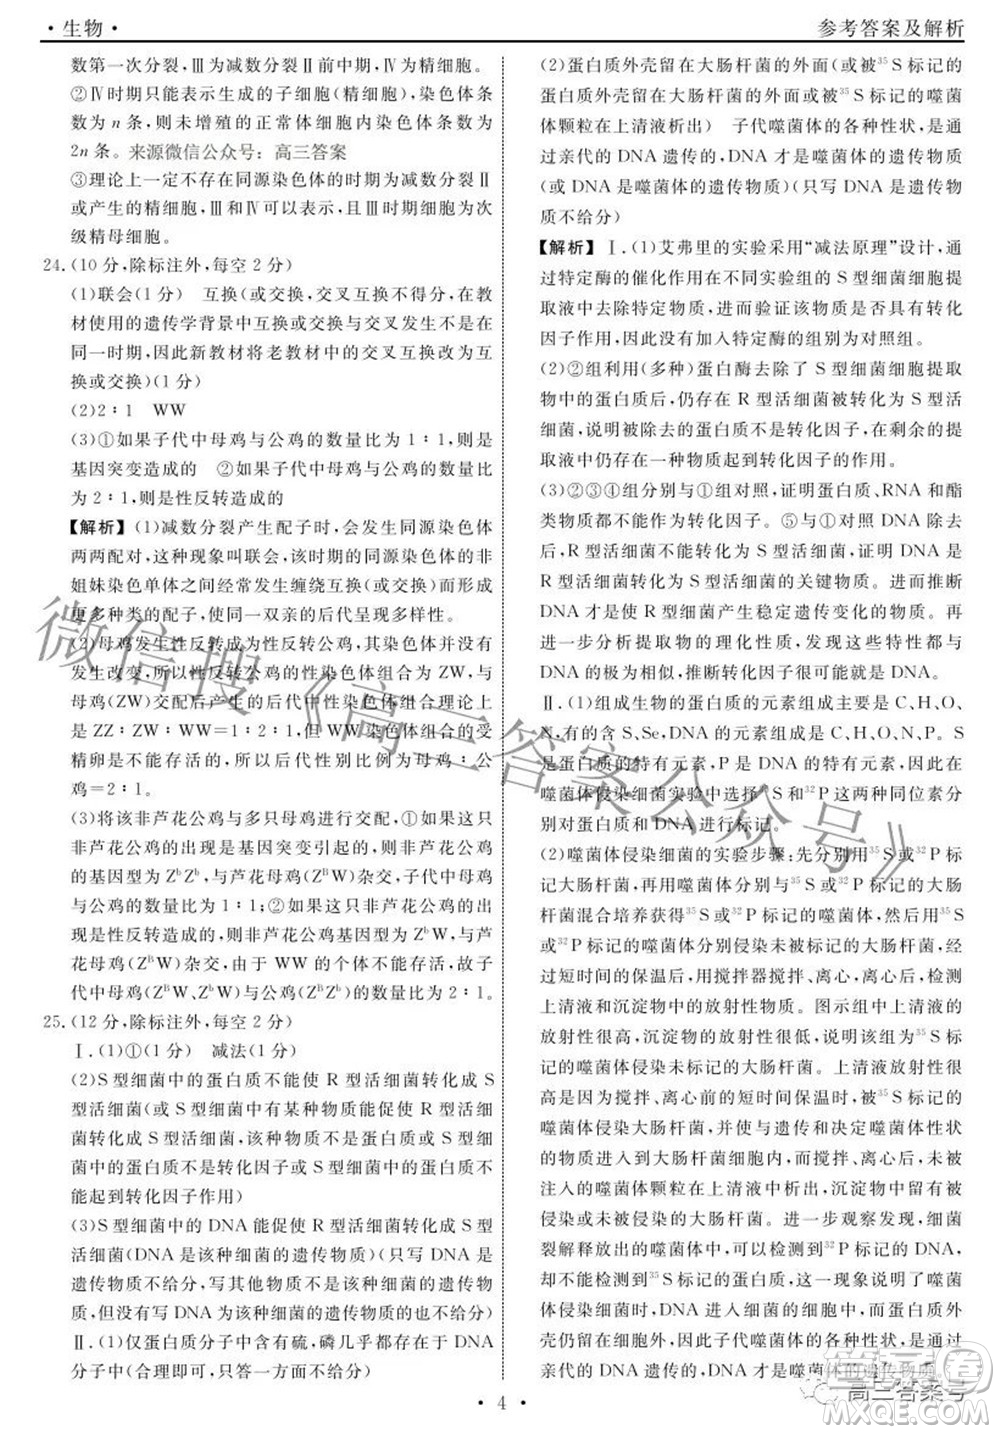 ·生物·
参考答案及解析
数第一次分裂,Ⅲ为减数分裂Ⅱ前中期,Ⅳ为精细胞。
②Ⅳ时期只能表示生成的子细胞(精细胞),染色体条
数为n条,则未增殖的正常体细胞内染色体条数为
2n条。来源微信公众号：高三答案
③理论上一定不存在同源染色体的时期为减数分裂Ⅱ
或产生的精细胞,Ⅲ和Ⅳ可以表示,且Ⅲ时期细胞为次
级精母细胞。
24.(10分,除标注外,每空2分)
(1)联会(1分) 互换(或交换,交叉互换不得分,在教
材使用的遗传学背景中互换或交换与交叉发生不是在
同一时期,因此新教材将老教材中的交叉互换改为互
换或交换)(1分)
(2)2∶1 WW
(3)①如果子代中母鸡与公鸡的数量比为1∶1,则是
基因突变造成的 ②如果子代中母鸡与公鸡的数量比
为2∶1,则是性反转造成的
【解析】(1)减数分裂产生配子时,会发生同源染色体
两两配对,这种现象叫联会,该时期的同源染色体的非
姐妹染色单体之间经常发生缠绕互换(或交换),产生
更多种类的配子,使同一双亲的后代呈现多样性。
(2)母鸡发生性反转成为性反转公鸡,其染色体并没有
发生改变,所以性反转公鸡的性染色体组合为ZW,与
母鸡(ZW)交配后产生的后代中性染色体组合理论上
是ZZ∶ZW∶WW=1∶2∶1,但实际情况是WW的受
精卵不能存活,所以后代的性别比例为母鸡∶公
鸡=2∶1。
(3)将该非芦花公鸡与多只母鸡进行交配,①如果这只
非芦花公鸡的出现是基因突变引起的,则非芦花公鸡
的基因型为ZᵇZᵇ,与芦花母鸡(ZᴮW)杂交,子代中母鸡
与公鸡的数量比为1∶1;②如果这只非芦花公鸡的出
现是性反转造成的,则非芦花公鸡基因型为ZᵇW,与芦
花母鸡(ZᴮW)杂交,由于WW的个体不能存活,故子
代中母鸡(ZᴮW、ZᵇW)与公鸡(ZᴮZᵇ)的数量比为2∶1。
25.(12分,除标注外,每空2分)
Ⅰ.(1)①(1分) 减法(1分)
(2)S型细菌中的蛋白质不能使R型活细菌转化成S
型活细菌(或S型细菌中有某种物质能促使R型活细
菌转化成S型活细菌,该种物质不可能是蛋白质或S
型细菌中的蛋白质不是转化因子或S型细菌中的蛋白质不
能起到转化因子作用)
(3)S型细菌中的DNA能促使R型活细菌转化成S型
活细菌(DNA是该种细菌的遗传物质)(只写DNA是
遗传物质不给分,写其他细菌或其他生物的遗传物质
包括有写DNA是该种细菌的遗传物质的也不给分)
Ⅱ.(1)仅蛋白质分子中含有硫,磷几乎都存在于DNA
分子中(合理即可,只答一个方面不给分)
(2)蛋白质外壳留在大肠杆菌的外面(或被³⁵S标记的
蛋白质外壳留在大肠杆菌的外面或被³⁵S标记的噬菌
体颗粒在上清液析出) 子代噬菌体的各种性状,是
通过亲代的DNA遗传的,DNA才是噬菌体的遗传物质
(或DNA是噬菌体的遗传物质)(只写DNA是遗传物
质不给分)
【解析】Ⅰ.(1)艾弗里的实验采用“减法原理”设计,通
过特定酶的催化作用在不同实验组的S型细菌细胞提
取液中去除特定物质,进而验证该物质是否具有转化
因子的作用。因此没有加入特定酶的组别为对照组。
(2)②组利用(多种)蛋白酶去除了S型细菌细胞提取
物中的蛋白质后,仍存在R型活细菌被转化为S型活
细菌,说明被除去的蛋白质不是转化因子,在剩余的成
分中存在一种物质起到转化因子的作用。
(3)②③④组分别与①组对照,证明蛋白质、RNA和酯
类物质都没有使R型细菌产生稳定遗传变化的作用,
不是转化因子。⑤与①对照DNA除去后,S
型活细菌不能转化为S型活细菌,证明DNA是使
R型活细菌转化为S型活细菌的关键物质。进而推断
DNA才是使R型细菌产生稳定遗传变化的物质。再
进一步分析提取物的理化性质,发现这些特性都与
DNA的极为相似,推断转化因子很可能就是DNA。
Ⅱ.(1)组成生物的蛋白质的元素组成主要是C、H、O、
N,有的含有S、Se,DNA的元素组成是C、H、O、N、P。S
是蛋白质的特有元素,P是DNA的特有元素,所以在
噬菌体侵染细菌实验中选择S和P这两种同位素分
别对蛋白质和DNA进行标记。
(2)噬菌体侵染细菌的实验步骤:先分别用³⁵S或³²P标
记大肠杆菌,再用噬菌体分别与³⁵S或³²P标记的大肠
杆菌混合培养获得³⁵S或³²P标记的噬菌体,然后用³⁵S
或³²P标记的噬菌体分别侵染未被标记的大肠杆菌,经
过短时间的保温后,用搅拌器搅拌、离心,离心后,检测
上清液和沉淀物中的放射性物质。图示组中上清液的
放射性很高,沉淀物的放射性很低,说明该组是³⁵S标
记的噬菌体侵染未标记的大肠杆菌。上清液放射性很
高是因为搅拌、离心使³⁵S标记的蛋白质外壳
噬菌体侵染大肠杆菌,并使与遗传和变异有关
的物质进入到大肠杆菌细胞内,而搅拌、离心后,未被
注入的噬菌体颗粒在上清液中析出,沉淀物中留有被
侵染或未被侵染的大肠杆菌。进一步观察发现,细菌
裂解释放出的噬菌体中,可以检测到³²P标记的DNA,
但却不能检测到³⁵S标记的蛋白质,这一现象说明了噬菌
体侵染细菌时,DNA进入细菌的细胞中,而蛋白质外
壳仍留在细胞外面,因此子代噬菌体的各种性状是通过
亲代的DNA遗传的,DNA才是噬菌体的遗传物质。
微信搜《高三答案公众号》
答案圈
高三答案号
MXQE.COM
·4·